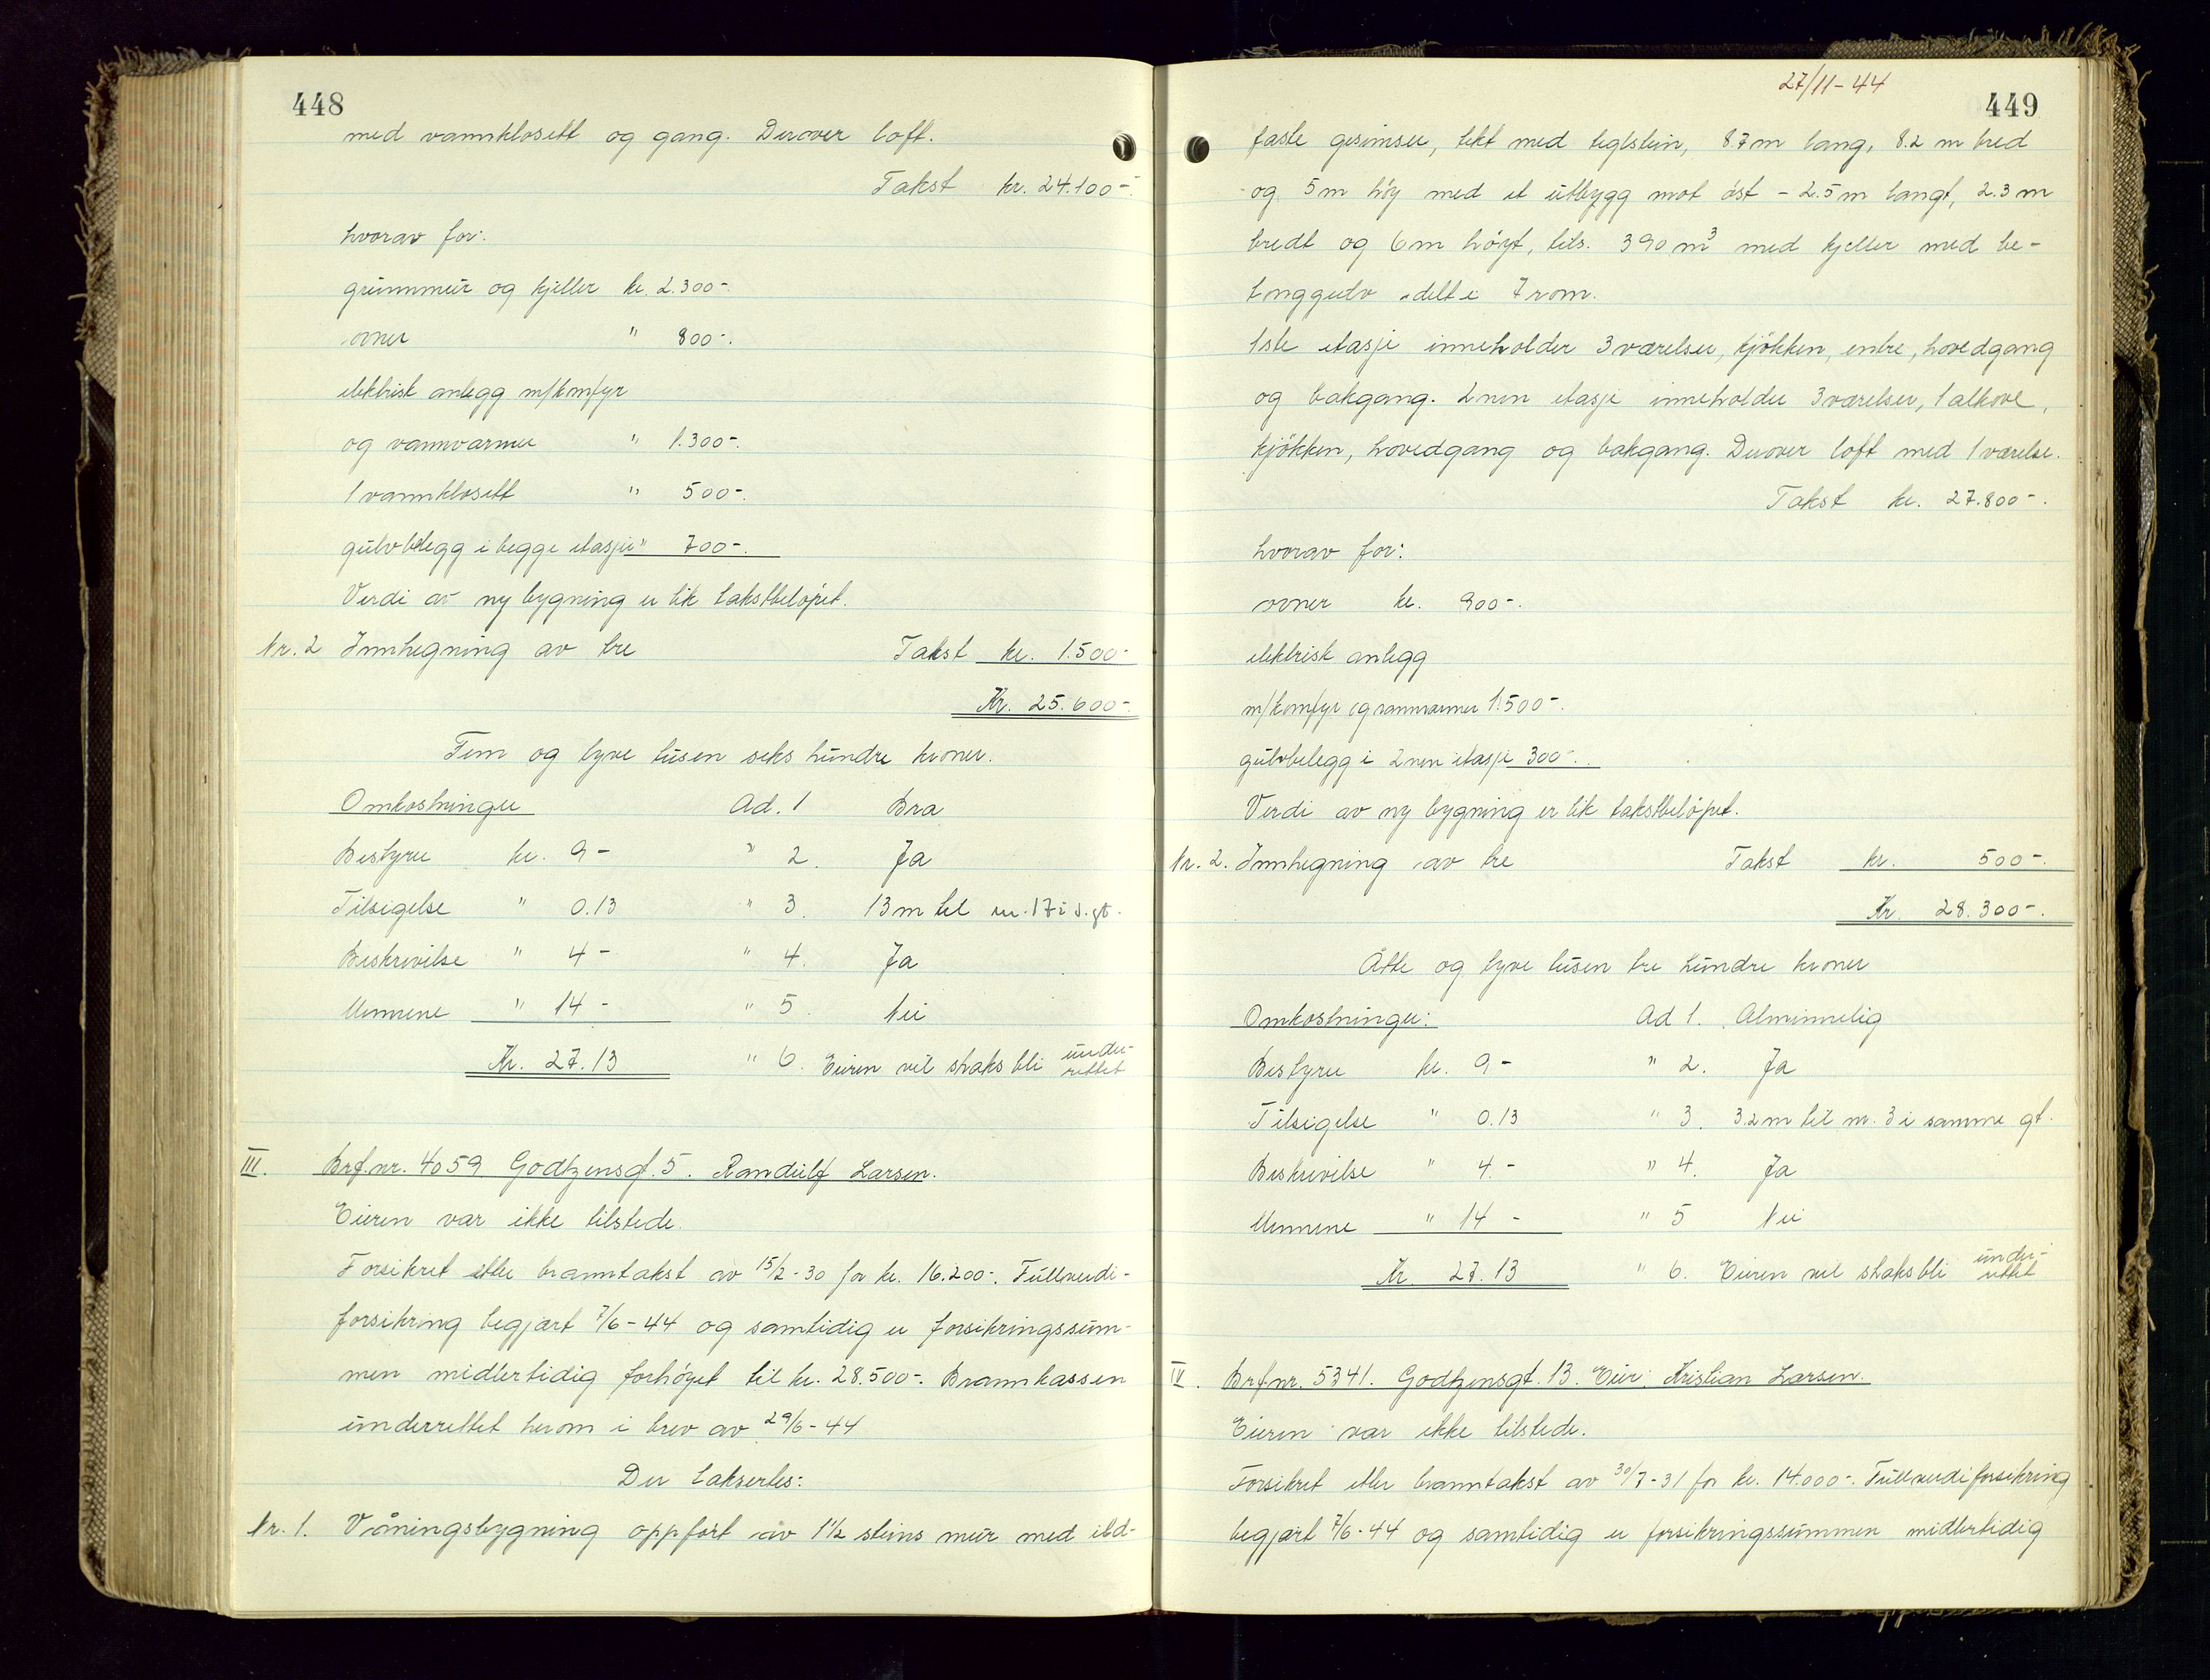 448
med vannklosett og gang. Derover loft.
Takst kr. 24.100-.
hvorav for:
grunnmur og kjeller kr. 2.300-.
ovner " 800-.
elektrisk anlegg m/komfyr
og vannvarmer " 1.300-.
1 vannklosett " 500-.
gulvbelegg i begge etasjer " 700-.
Verdi av ny bygning er lik takstbeløpet.
Nr. 2 Innhegning av tre Takst kr. 1.500-
Kr. 25.600-.
Fem og tyve tusen seks hundre kroner.
Omkostninger Ad. 1 Bra
Bestyrer kr. 9- " 2. Ja
Tilsigelse " 0.13 " 3. 13 m til nr. 17 i s. gt.
Beskrivelse " 4- " 4. Ja
Mennene " 14- " 5. Nei
Kr. 27.13 " 6. Eieren vil straks bli under-
rettet
III. Brf.nr. 4059 Godtzensgt. 5. Randulf Larsen.
Eieren var ikke tilstede.
Forsikret etter branntakst av 15/2-30 for kr. 16.200-. Fullverdi-
forsikring begjært 7/6-44 og samtidig er forsikringssum-
men midlertidig forhøyet til kr. 28.500-. Brannkassen
underrettet herom i brev av 29/6-44
Der taksertes:
Nr. 1. Våningsbygning oppført av 1½ steins mur med ild-
27/11-44
449
faste gesimser, tekt med teglstein, 8.7 m lang, 8.2 m bred
og 5 m høy med et utbygg mot øst - 2.5 m langt, 2.3 m
bredt og 6 m høyt, tils. 390 m³ med kjeller med be-
tonggulv delt i 7 rom.
1ste etasje inneholder 3 værelser, kjøkken, entre, hovedgang
og bakgang. 2nen etasje inneholder 3 værelser, 1 alkove,
kjøkken, hovedgang og bakgang. Derover loft med 1 værelse.
Takst kr. 27.800-.
hvorav for:
ovner kr. 900-.
elektrisk anlegg
m/komfyr og vannvarmer 1.500-.
gulvbelegg i 2nen etasje 300-.
Verdi av ny bygning er lik takstbeløpet.
Nr. 2. Innhegning av tre Takst kr. 500-.
Kr. 28.300-.
Åtte og tyve tusen tre hundre kroner
Omkostninger: Ad 1. Alminnelig
Bestyrer kr. 9- " 2. Ja
Tilsigelse " 0.13 " 3. 32 m til nr. 3 i samme gt.
Beskrivelse " 4.- " 4. Ja
Mennene " 14- " 5 Nei
Kr. 27.13 " 6. Eieren vil straks bli under-
rettet
IV. Brf.nr. 5341. Godtzensgt. 13. Eier: Kristian Larsen.
Eieren var ikke tilstede.
Forsikret etter branntakst av 30/7-31 for kr. 14.000-. Fullverdiforsikring
begjært 7/6-44 og samtidig er forsikringssummen midlertidig